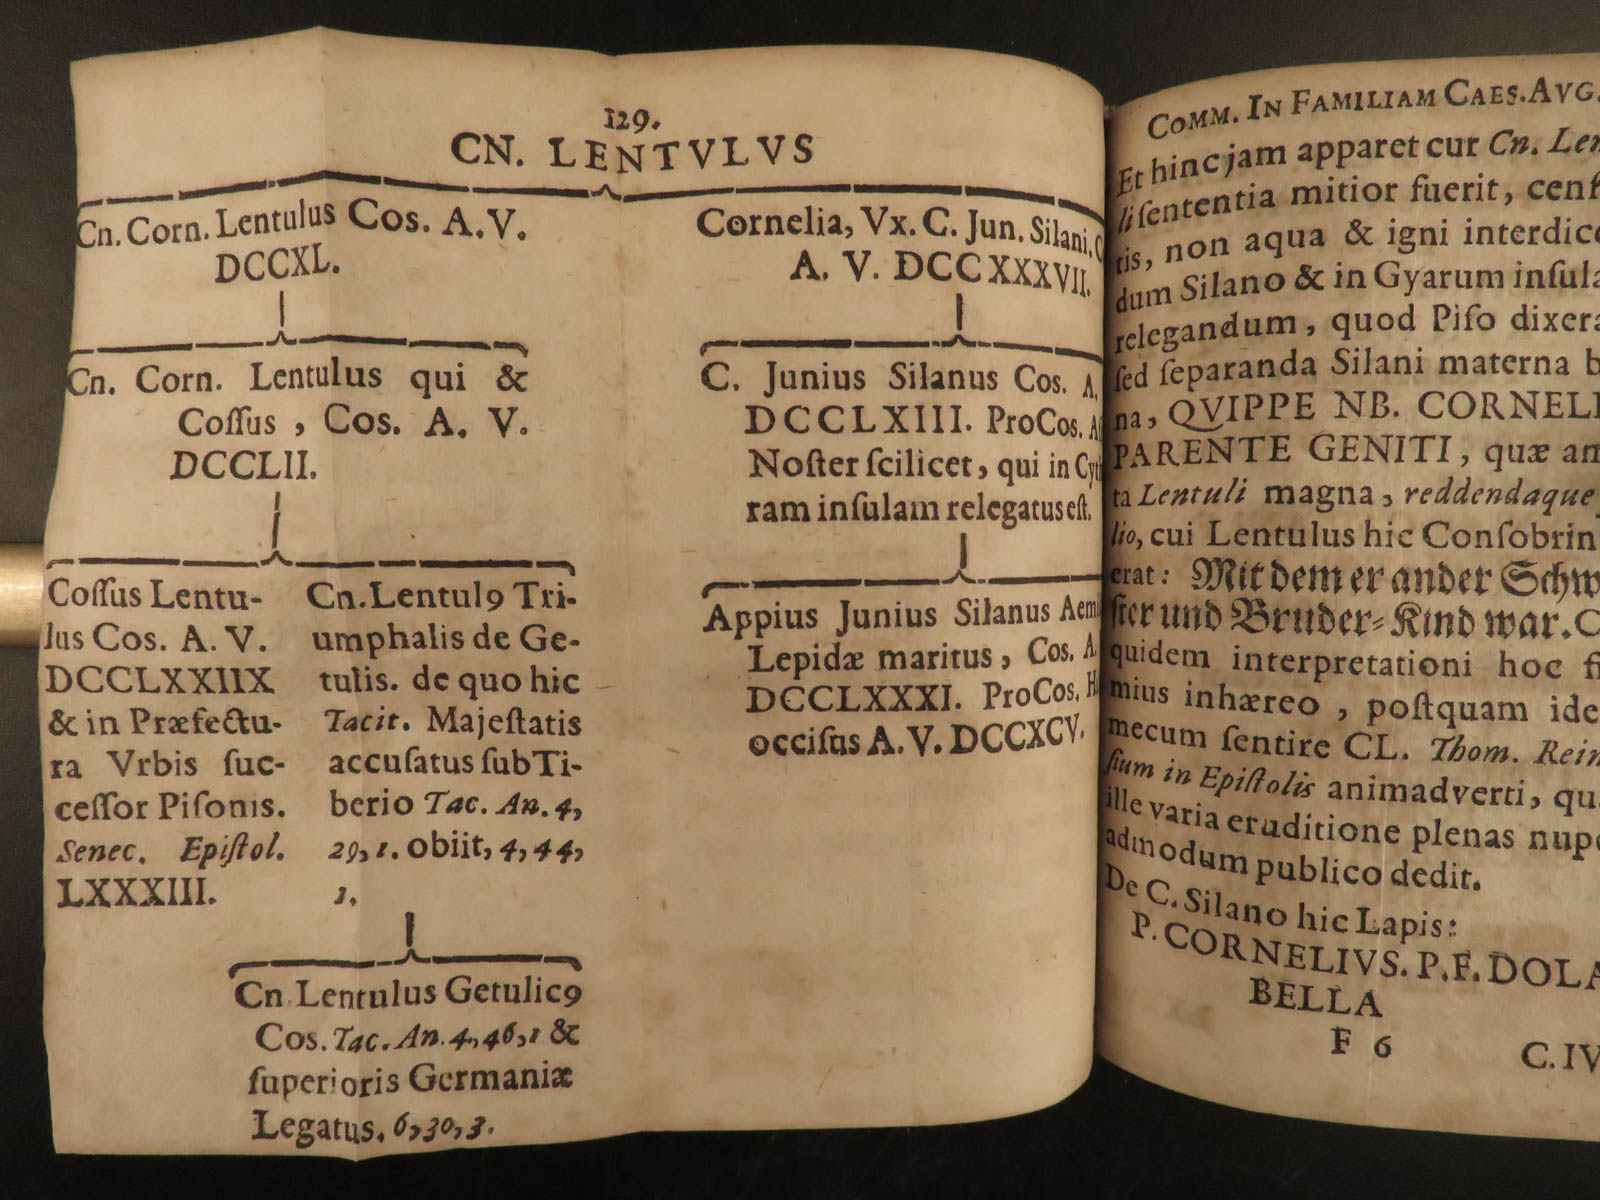 129.
CN. LENTVLVS
Cn. Corn. Lentulus Cos. A.V.
DCCXL.
Cn. Corn. Lentulus qui &
Coſſus, Cos. A. V.
DCCLII.
Coſſus Lentu-
lus Cos. A. V.
DCCLXXIIX
& in Præfectu-
ra Vrbis ſuc-
ceſſor Piſonis.
Senec. Epiſtol.
LXXXIII.
Cn. Lentulꝰ Tri-
umphalis de Ge-
tulis. de quo hic
Tacit. Majeſtatis
accuſatus ſub Ti-
berio Tac. An. 4,
29, 1. obiit, 4, 44,
1.
Cn. Lentulus Getulicꝰ
Cos. Tac. An. 4, 46, 1 &
ſuperioris Germaniæ
Legatus. 6, 30, 3.
Cornelia, Vx. C. Jun. Silani,
A. V. DCCXXXVII.
C. Junius Silanus Cos. A.
DCCLXIII. ProCos.
Noſter ſcilicet, qui in
ram inſulam relegatus eſt.
Appius Junius Silanus
Lepidæ maritus, Cos. A.
DCCLXXXI. ProCos.
occiſus A. V. DCCXCV.
COMM. IN FAMILIAM CAES. AVG.
Et hinc jam apparet cur Cn.
li ſententia mitior fuerit,
tis, non aqua & igni
dum Silano & in Gyarum
relegandum, quod Piſo
ſed ſeparanda Silani materna
na, QVIPPE NB.
PARENTE GENITI, quæ
ta Lentuli magna, reddendaque
lio, cui Lentulus hic
erat: Mit dem er ander
ſter und Bruder-Kind war.
quidem interpretationi hoc
mius inhæreo, poſtquam
mecum ſentire CL. Thom.
ſium in Epiſtolis animadverti,
ille varia eruditione plenas
admodum publico dedit.
De C. Silano hic Lapis:
P. CORNELIVS. P. F. DOLA
BELLA
F 6
C. IV